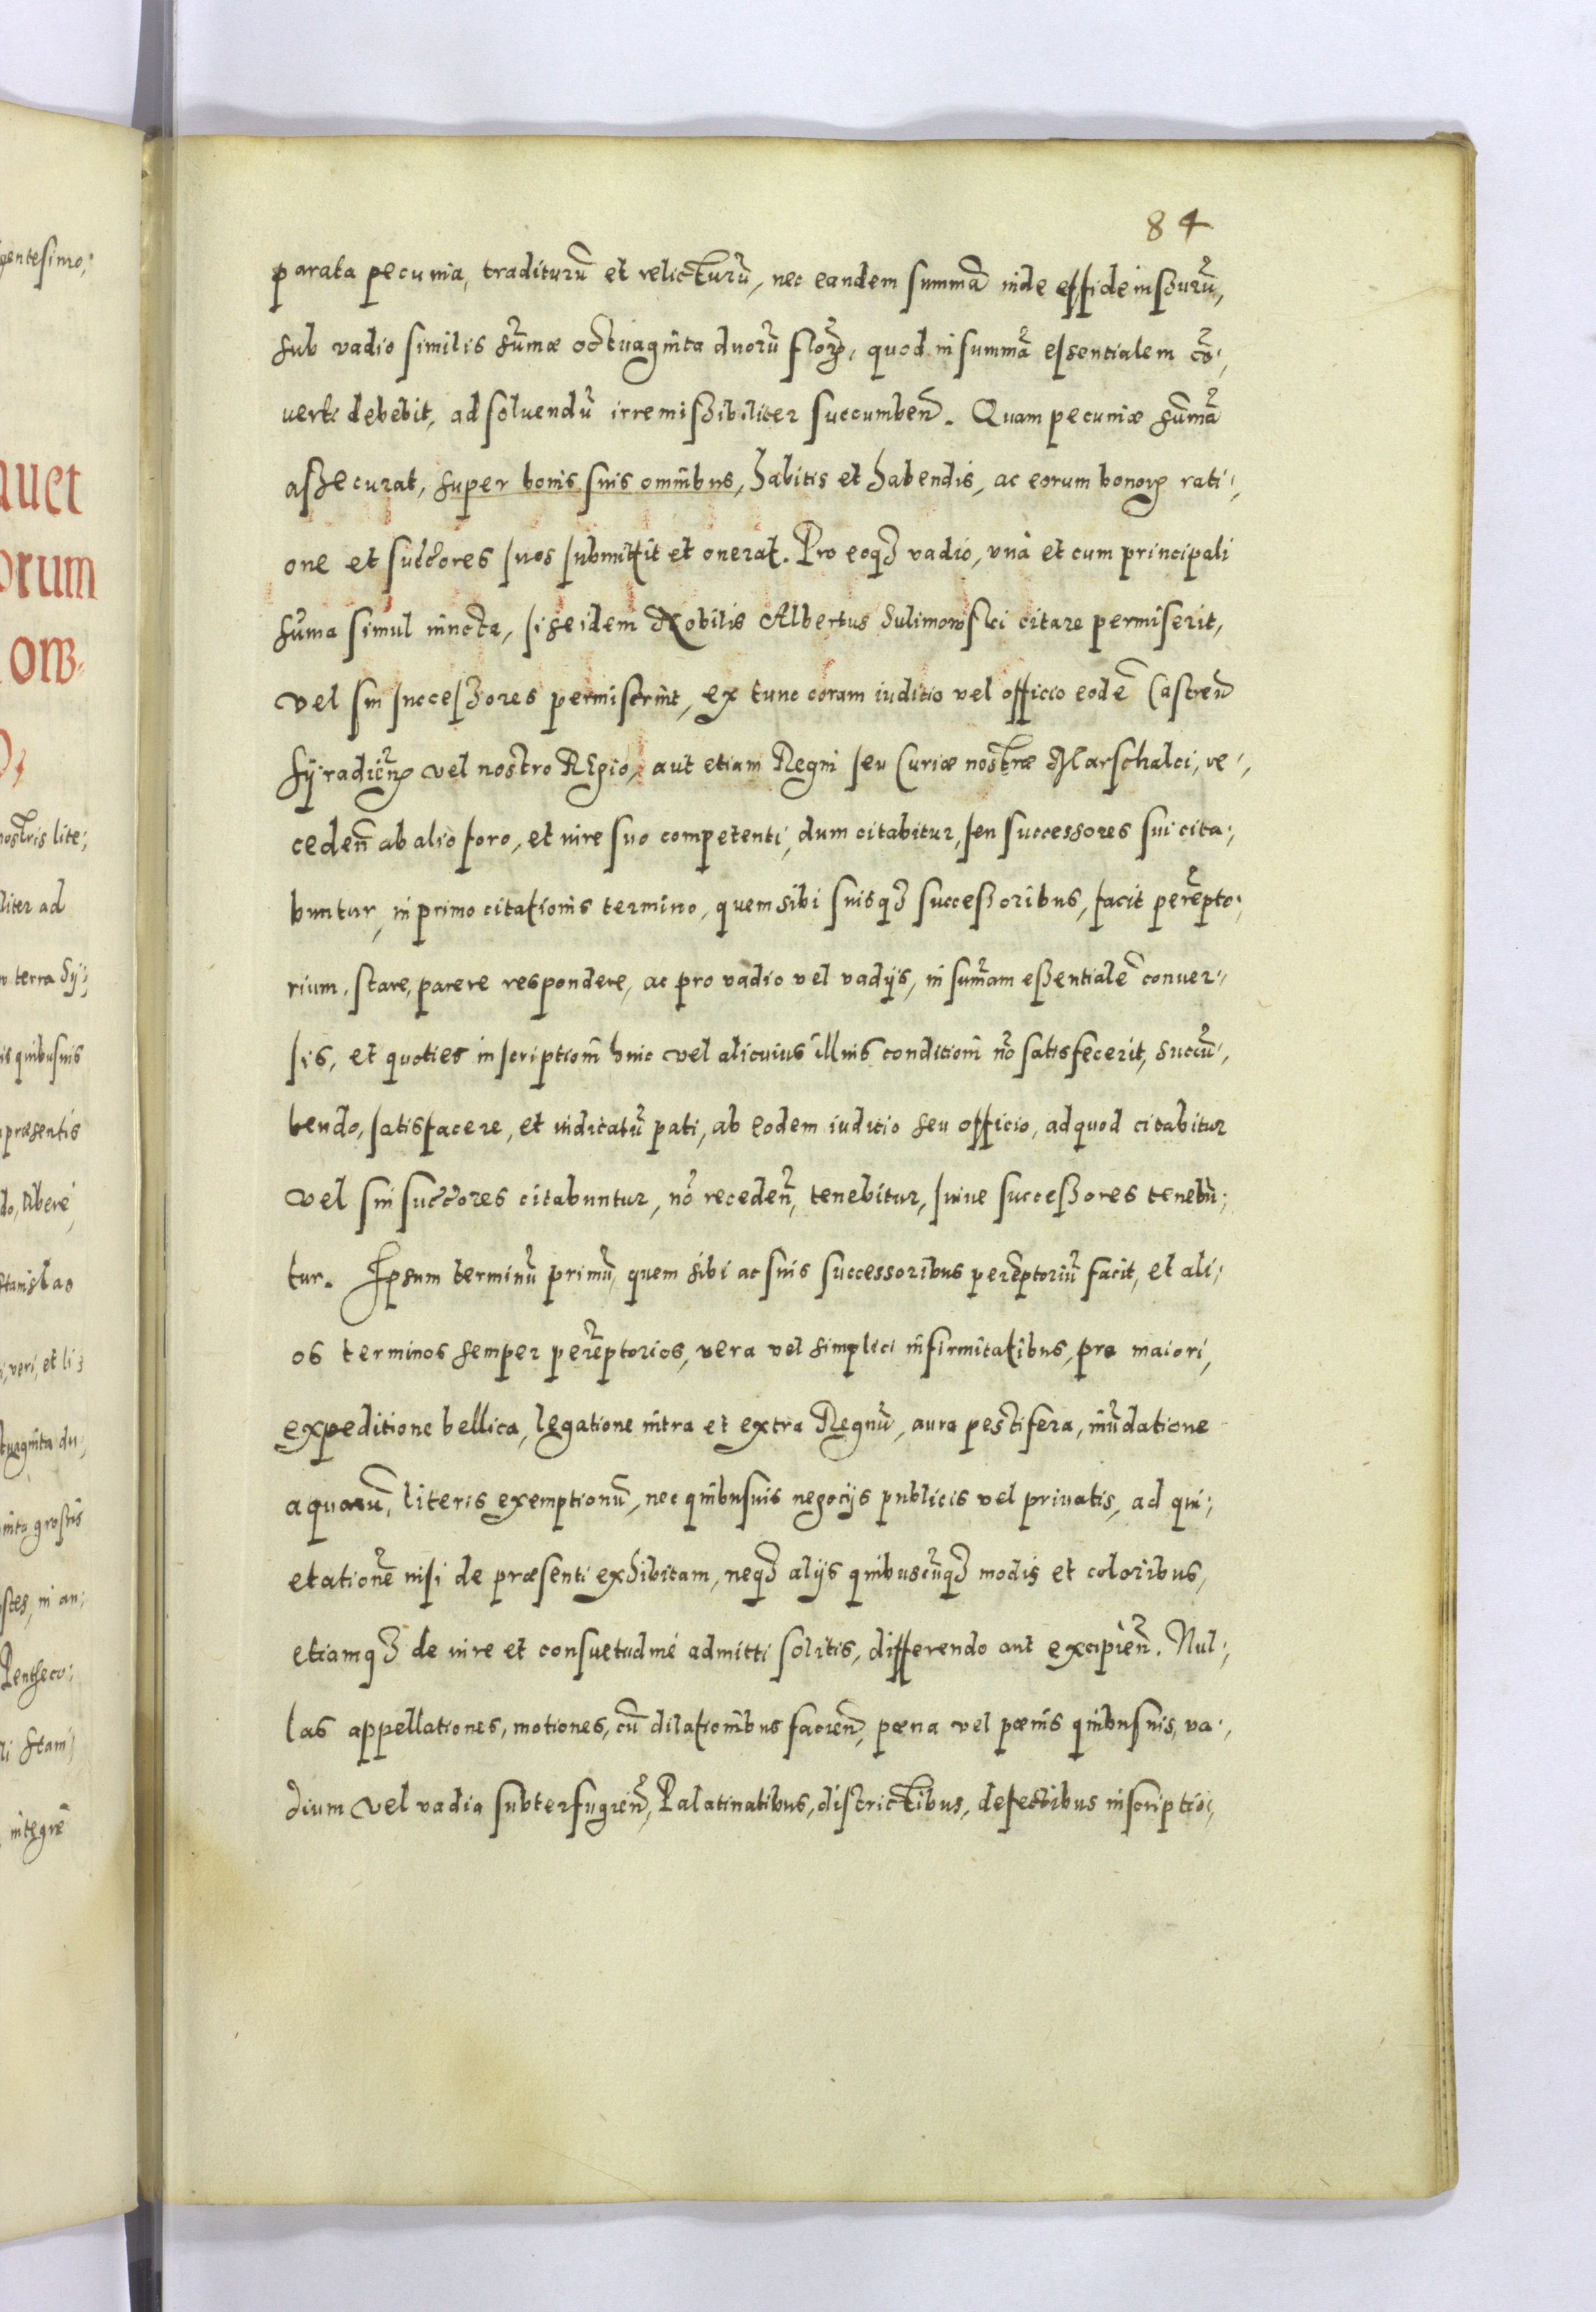 84
parata pecunia, traditurū et relicturū, nec eandem summā inde effideiussurū,
sub vadio similis sūmæ octuaginta duorū florꝝ, quod in summā essentialem cō,
uerti debebit, ad soluendū irremissibiliter succumben̄. Quam pecuniæ sūmā
assecurat, super bonis suis omnibus, habitis et habendis, ac eorum bonorꝝ rati,
one et succ̄ores suos submittit et onerat. Pro eoqꝫ vadio, vnà et cum principali
sūma simul iuncta, si se idem Nobilis Albertus Sulimowski citare permiserit,
vel sui successores permiserint, ex tunc coram iuditio vel officio eodē Castren̄
Syradien̄ vel nostro Regio, aut etiam Regni seu Curiæ nostræ Marschalci, re,
ceden̄ ab alio foro, et iure suo competenti, dum citabitur, seu successores sui cita,
buntur, in primo citationis termino, quem sibi suisqꝫ successoribus, facit perēpto,
rium, stare, parere respondere, ac pro vadio vel vadijs, in sum̄am essentialē conuer,
sis, et quoties inscriptioni huic vel alicuius illius conditioni nō satisfecerit, succū,
bendo, satisfacere, et iudicatū pati, ab eodem iuditio seu officio, ad quod citabitur
vel sui succ̄ores citabuntur, nō receden̄, tenebitur, suiue successores tenebū,
tur. Ipsum terminū primū, quem sibi ac suis successoribus perēptoriū facit, et ali,
os terminos semper perēptorios, vera vel simplici infirmitatibus, pro maiori,
expeditione bellica, legatione intra et extra Regnū, aura pestifera, inūdatione
aquarū, literis exemptionū, nec quibusuis negocijs publicis vel priuatis, ad qui,
etationē nisi de præsenti exhibitam, neqꝫ alijs quibuscūqꝫ modis et coloribus,
etiamqꝫ de iure et consuetudine admitti solitis, differendo aut excipien̄. Nul,
las appellationes, motiones, cū dilationibus facien̄, pœna vel pœnis quibusuis, va,
dium vel vadia subterfugien̄, Palatinatibus, districtibus, defectibus inscriptio,